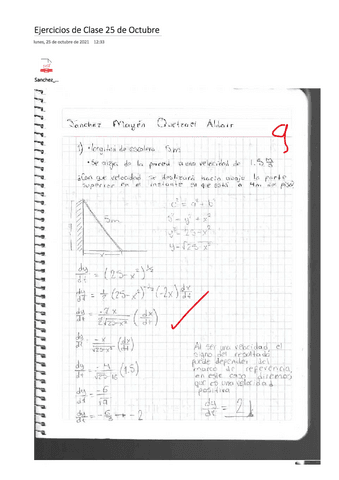 Ejercicios de Clase 25 de Octubre
lunes, 25 de octubre de 2021 12:53
Sanchez_...
Sánchez Mayén Quetzal Aldair
9
1) • longitud de escalera 5m
• se aleja de la pared a una velocidad de 1.5 m/s
¿Con que velocidad se deslizará hacia abajo la parte
superior en el instante en que está a 4m del piso?
c² = a² + b²
5² = y² + x²
y² = 25 - x²
y = √25 - x²
5m
dy/dt = (25 - x²)^1/2
dy/dt = 1/2 (25 - x²)^-1/2 (-2x) dx/dt
dy/dt = -2x / 2√25-x² (dx/dt)
dy/dt = -x / √25-x² (dx/dt)
dy/dt = -4 / √25-16 (1.5)
dy/dt = -6 / √9
dy/dt = -6/3 = -2
Al ser una velocidad, el
signo del resultado
puede depender del
marco de referencia,
en este caso diremos
que es una velocidad
positiva
dy/dt = 2